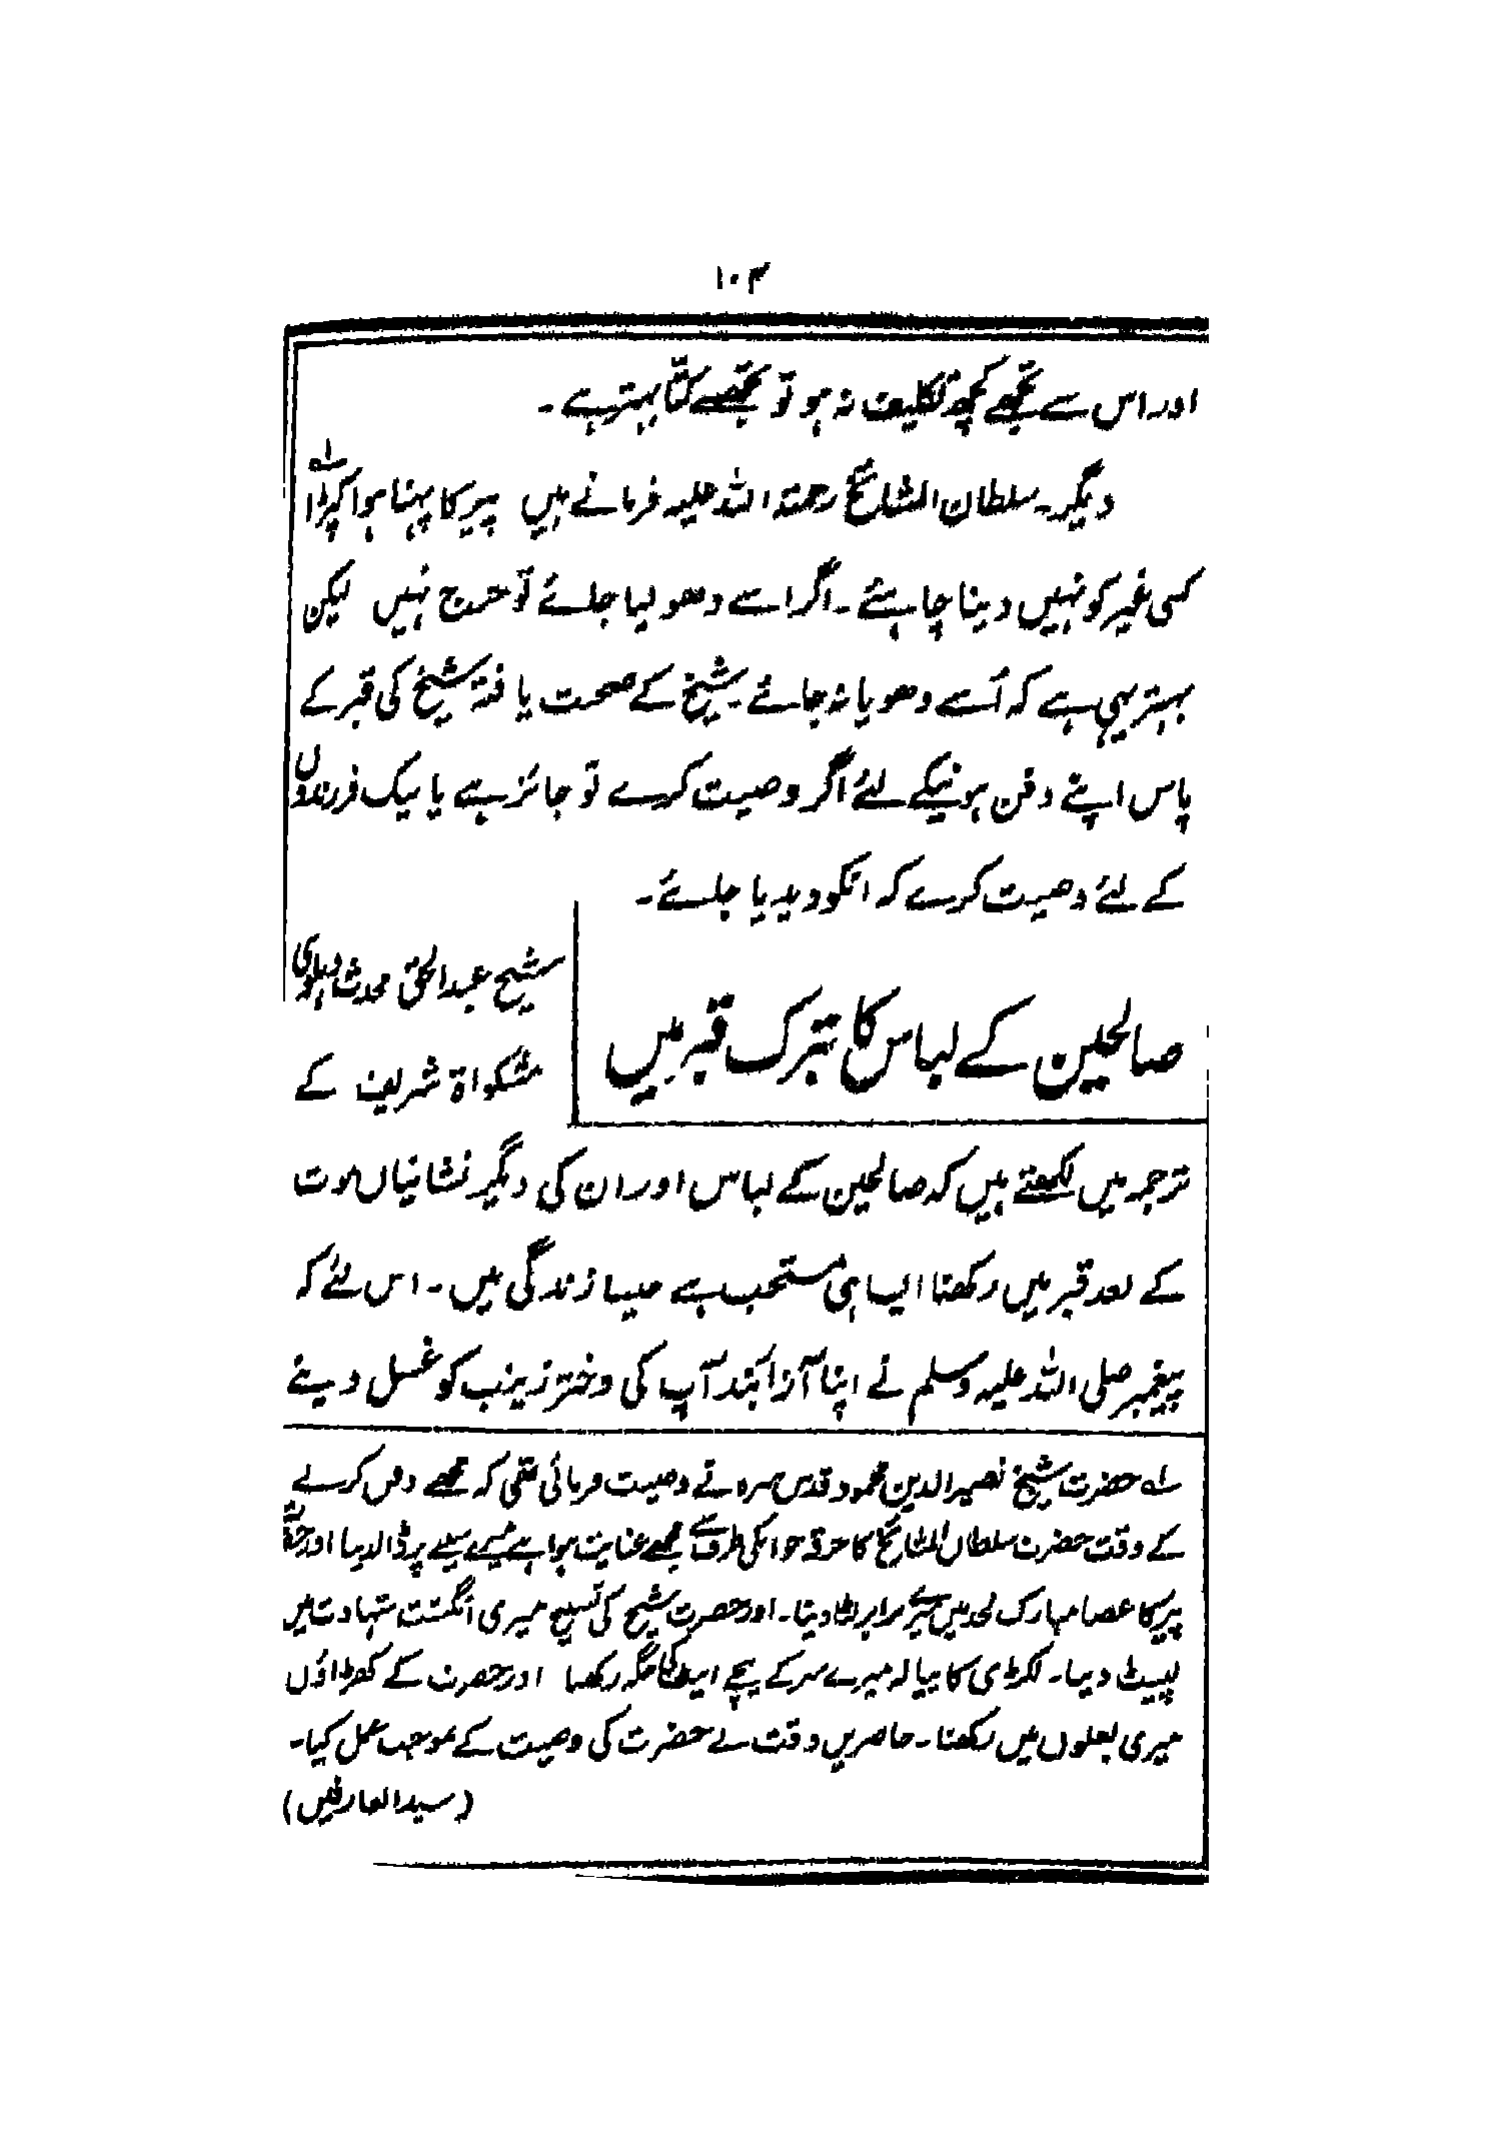 ۱۰۳
اور اس سے تجھے کچھ تکلیف نہ ہو تو تجھسے کتّا بہتر ہے ۔
دیگر۔ سلطان المشائخ رحمتہ اللہ علیہ فرماتے ہیں پیر کا پہنا ہوا کپڑا لہ
کسی غیر کو نہیں دینا چاہئے ۔ اگر اسے دھو لیا جلئے تو حرج نہیں لیکن
بہتر یہی ہے کہ اُسے دھویا نہ جائے ۔ شیخ کے صحبت یافتہ شیخ کی قبر کے
پاس اپنے دفن ہونیکے لئے اگر وصیت کرے تو جائز ہے یا نیک فرزندوں
کے لئے وصیت کرے کہ انکو دیدیا جلئے ۔
صالحین کے لباس کا تبرک قبر میں
شیخ عبدالحق محدث دہلوی
مشکواۃ شریف کے
ترجمہ میں لکھتے ہیں کہ صالحین کے لباس اور ان کی دیگر نشانیاں موت
کے بعد قبر میں رکھنا ایسا ہی مستحب ہے جیسا زندگی میں ۔ اس لئے کہ
پیغمبر صلی اللہ علیہ وسلم نے اپنا آزا بند آپ کی دختر زینب کو غسل دینے
لہ حضرت شیخ نصیر الدین محمود قدس سرہ نے وصیت فرمائی تھی کہ مجھے دفن کرنے
کے وقت حضرت سلطان المشائخ کا خرقہ جو انکی طرف سے مجھے عنایت ہوا ہے میرے سینے پر ڈالدینا اور
پیر کا عصا مبارک لحد میں میرے برابر لٹا دینا ۔ اور حضرت شیخ کی تسبیح میری انگشت شہادت میں
لپیٹ دینا ۔ لکڑی کا پیالہ میرے سر کے نیچے اینٹ کی جگہ رکھنا اور حضرت کے کھڑاؤں
میری بغلوں میں رکھنا ۔ حاضرین وقت نے حضرت کی وصیت کے بموجب عمل کیا ۔
(سید العارفین)